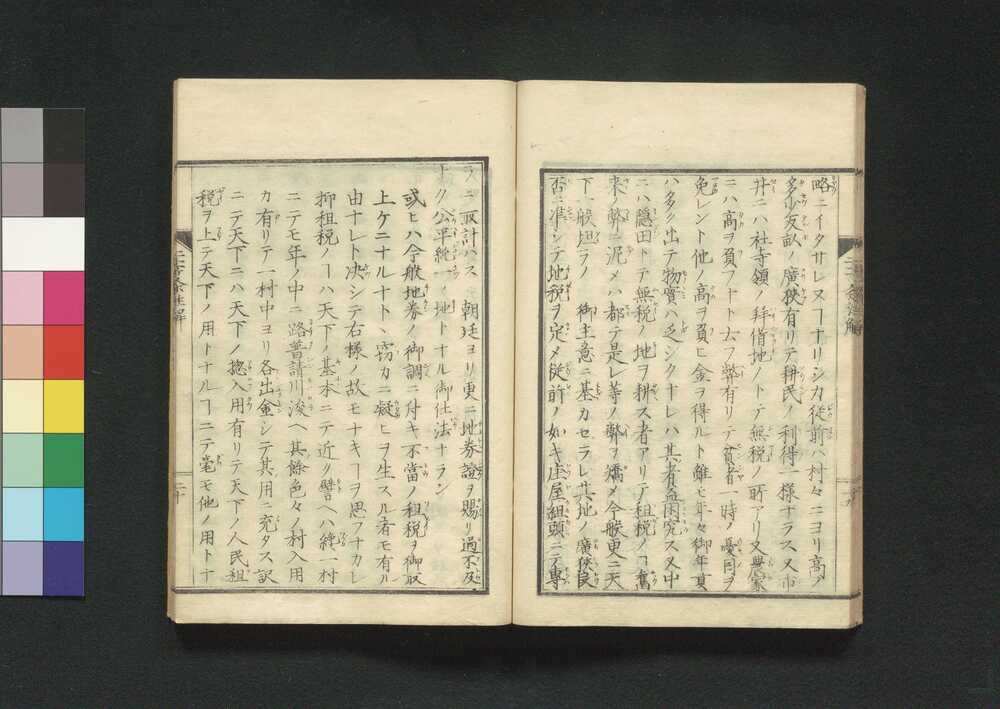 略ニイタサレヌヿナリシカ従前ハ村々ニヨリ高ノ
多少反畝ノ廣狹有リテ耕民ノ利得一様ナラス又市
井ニハ社寺領ノ拜借地ノトテ無税ノ所アリ又農家
ニハ高ヲ負フトカ云フ弊有リテ貧者一時ノ憂困ヲ
免レント他ノ高ヲ負ヒ金ヲ得ルト雖モ年々御年貢
ハ多ク出テ物實ハ乏シクナレハ其者益困究ス又中
ニハ隠田トテ無税ノ地ヲ耕ス者アリテ租税ノヿ舊
来ノ弊ニ泥メハ都テ是レ等ノ弊ヲ矯メ今般更ニ天
下一般坦ラノ 御主意ニ基カセラレ其地ノ廣狹良
否ニ準シテ地税ヲ定メ従前ノ如キ庄屋組頭ニテ專
ラニ取計ハス 朝廷ヨリ更ニ地券證ヲ賜リ過不及
ナク公平統一ノ地トナル御仕法ナラン
或ヒハ今般地券ノ御調ニ付キ不當ノ租税ヲ御取
上ケニナルナト丶窃カニ疑ヒヲ生スル者モ有ル
由ナレト决シテ右様ノ故モナキヿヲ思フナカレ
抑租税ノヿハ天下ノ基本ニテ近ク譬ヘハ纔一村
ニテモ年ノ中ニ路普請川浚ヘ其餘色々ノ村入用
カ有リテ一村中ヨリ各出金シテ其用ニ充タス訳
ニテ天下ニハ天下ノ惣入用有リテ天下ノ人民租
税ヲ上テ天下ノ用トナルヿニテ毫モ他ノ用トナ